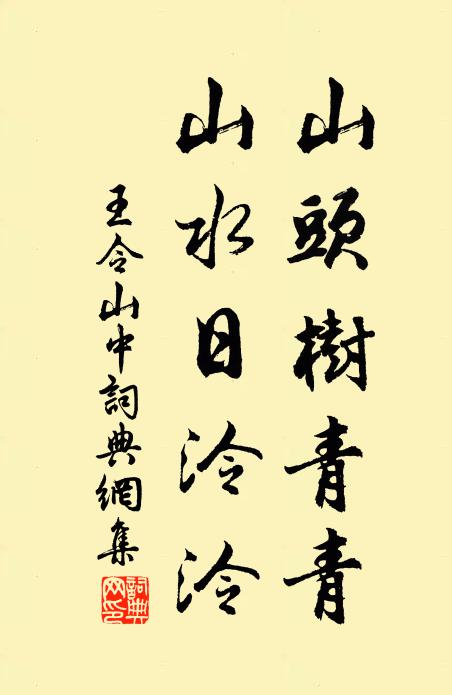 山頭樹青青
山水日泠泠
王令山中詞典網集
詞典网印